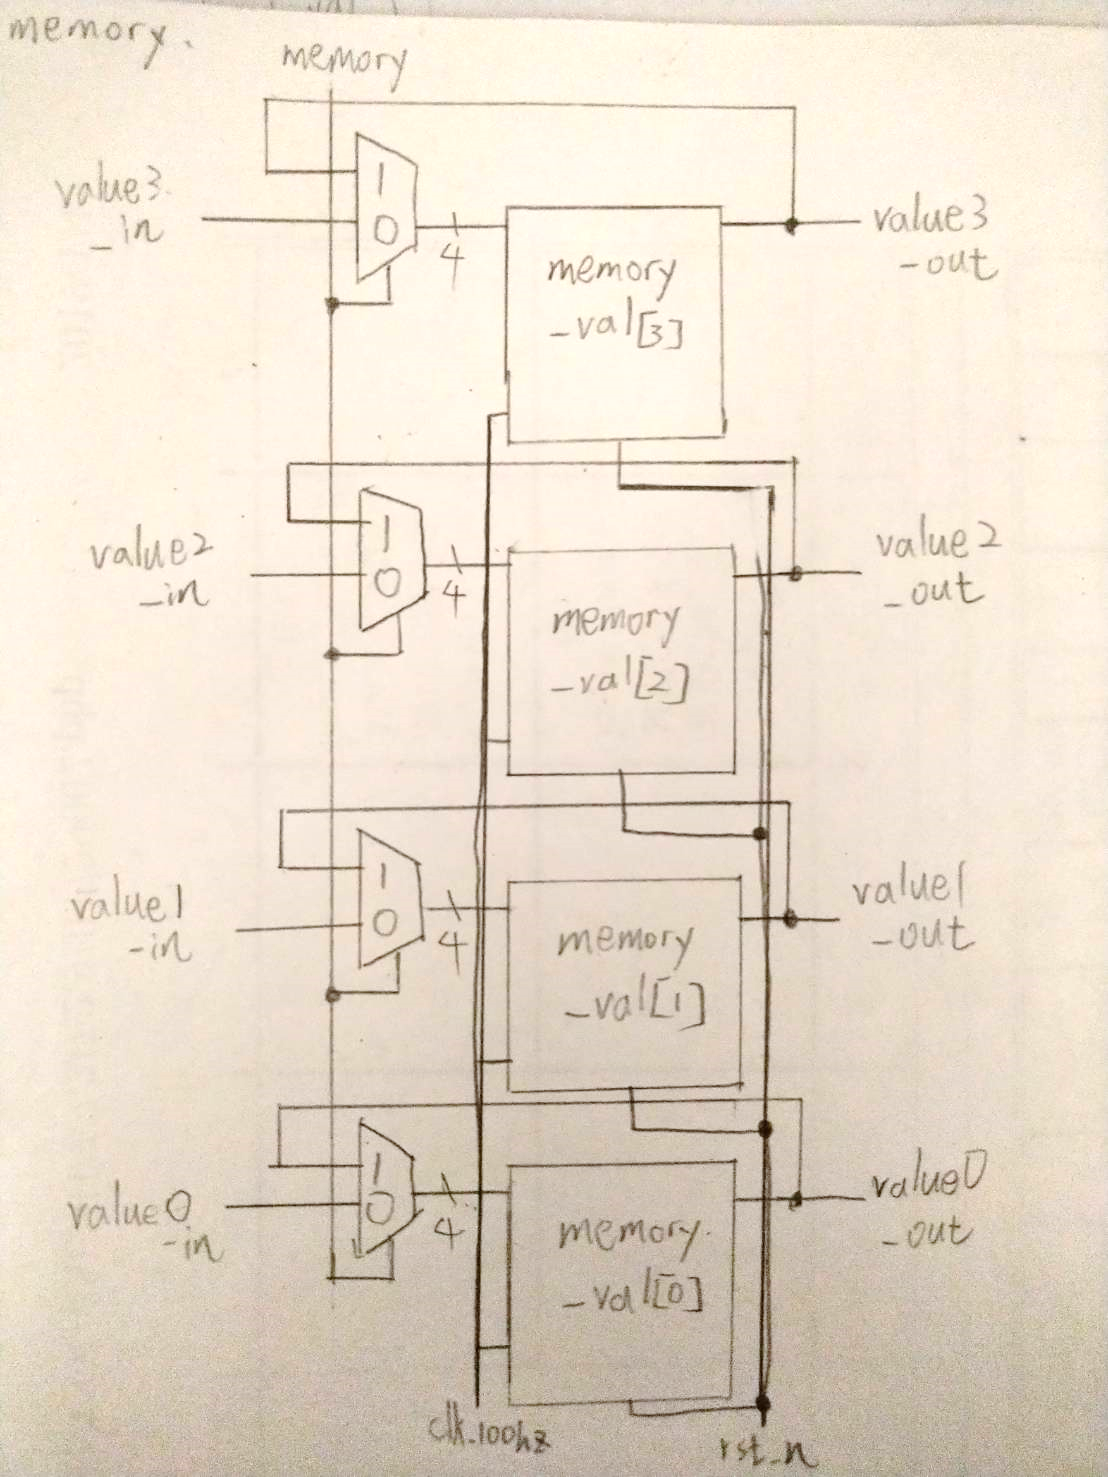 memory.
memory
value3
_in
1
0
4
memory
_val[3]
value3
_out
value2
_in
1
0
4
memory
_val[2]
value2
_out
value1
_in
1
0
4
memory
_val[1]
value1
_out
value0
_in
1
0
4
memory.
_val[0]
value0
_out
clk_100hz
rst_n